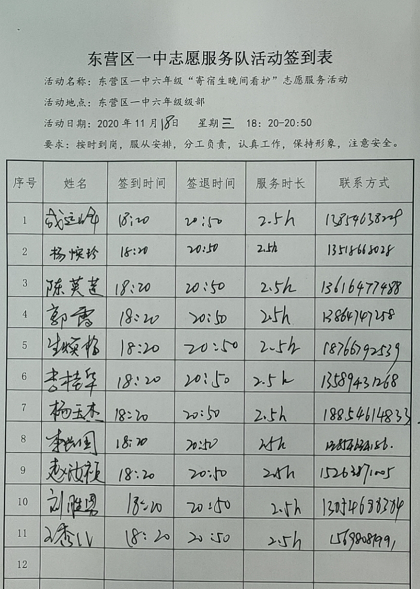 东营区一中志愿服务队活动签到表
活动名称：东营区一中六年级“寄宿生晚间看护”志愿服务活动
活动地点：东营区一中六年级级部
活动日期：2020年11月18日 星期三 18:20-20:50
要求：按时到岗，服从安排，分工负责，认真工作，保持形象，注意安全。
序号 姓名 签到时间 签退时间 服务时长 联系方式
1 18:20 20:50 2.5h
2 18:20 20:50 2.5h 13518668028
3 陈英莲 18:20 20:50 2.5h 13616477488
4 郭霞 18:20 20:50 2.5h 13864747258
5 18:20 20:50 2.5h 18766792539
6 李桂华 18:20 20:50 2.5h 13589431268
7 杨玉杰 18:20 20:50 2.5h 18854614833
8 18:20 20:50 2.5h
9 18:20 20:50 2.5h
10 刘胜男 18:20 20:50 2.5h
11 18:20 20:50 2.5h
12